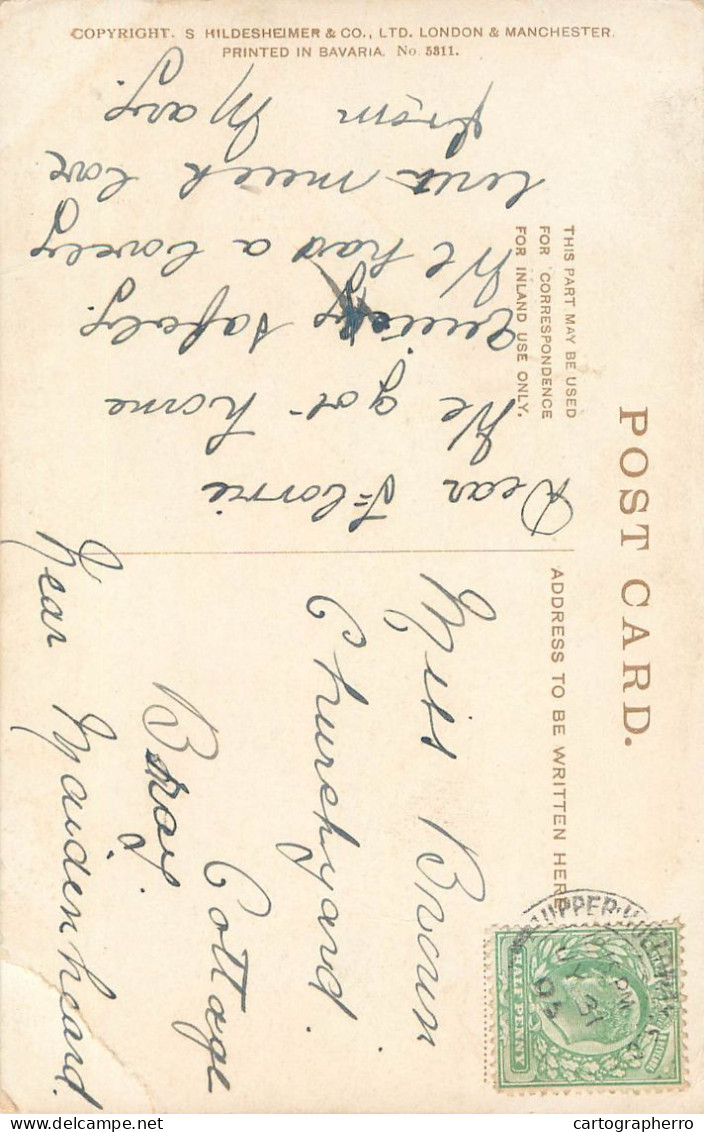 COPYRIGHT. S HILDESHEIMER & CO., LTD. LONDON & MANCHESTER.
PRINTED IN BAVARIA. No. 5311.
POST CARD.
THIS PART MAY BE USED
FOR CORRESPONDENCE
FOR INLAND USE ONLY.
ADDRESS TO BE WRITTEN HERE
Dear Florrie
We got home
safely.
We had a lovely
much love
from Mary.
Miss Brown
Churchyard.
Cottage
Bray.
Near Maidenheard.
HALF PENNY
UPPER
PM
31
03
cartographerro